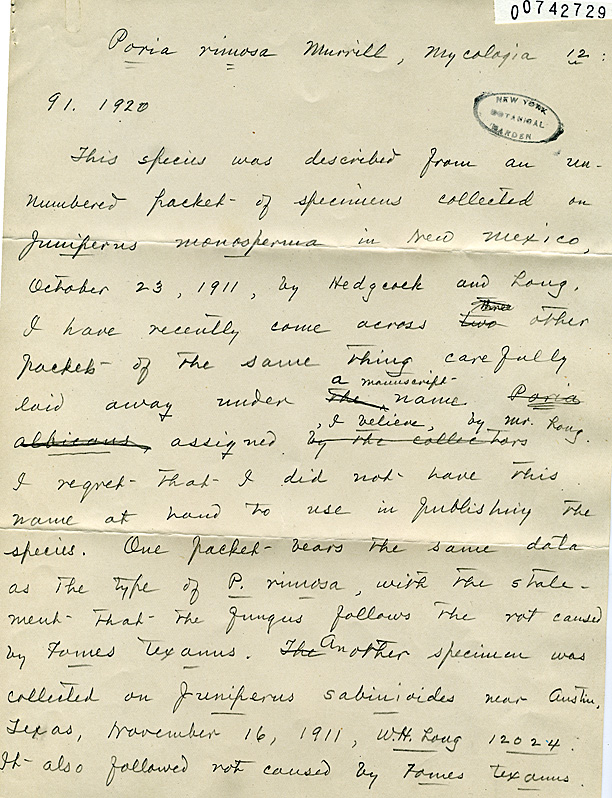 00742729
Poria rimosa Murrill, Mycologia 12:
91. 1920
NEW YORK
BOTANICAL
GARDEN
This species was described from an un-
numbered packet of specimens collected on
Juniperus monosperma in New Mexico,
October 23, 1911, by Hedgcock and Long.
three
I have recently come across two other
packets of the same thing carefully
a manuscript
laid away under the name Poria
, I believe, by Mr. Long.
albicans, assigned by the collectors
I regret that I did not have this
name at hand to use in publishing the
species. One packet bears the same data
as the type of P. rimosa, with the state-
ment that the fungus follows the rot caused
by Fomes texanus. The Another specimen was
collected on Juniperus sabinioides near Austin,
Texas, November 16, 1911, W.H. Long 12024.
It also followed rot caused by Fomes texanus.